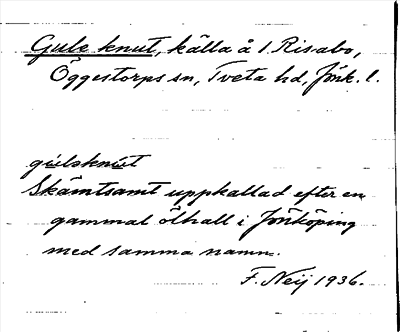 Gule knut, källa å 1 Risabo,
Öggestorps sn, Tveta hd, Jönk. l.
gulsknut
Skämtsamt uppkallad efter en
gammal ölhall i Jönköping
med samma namn.
F. Neij 1936.